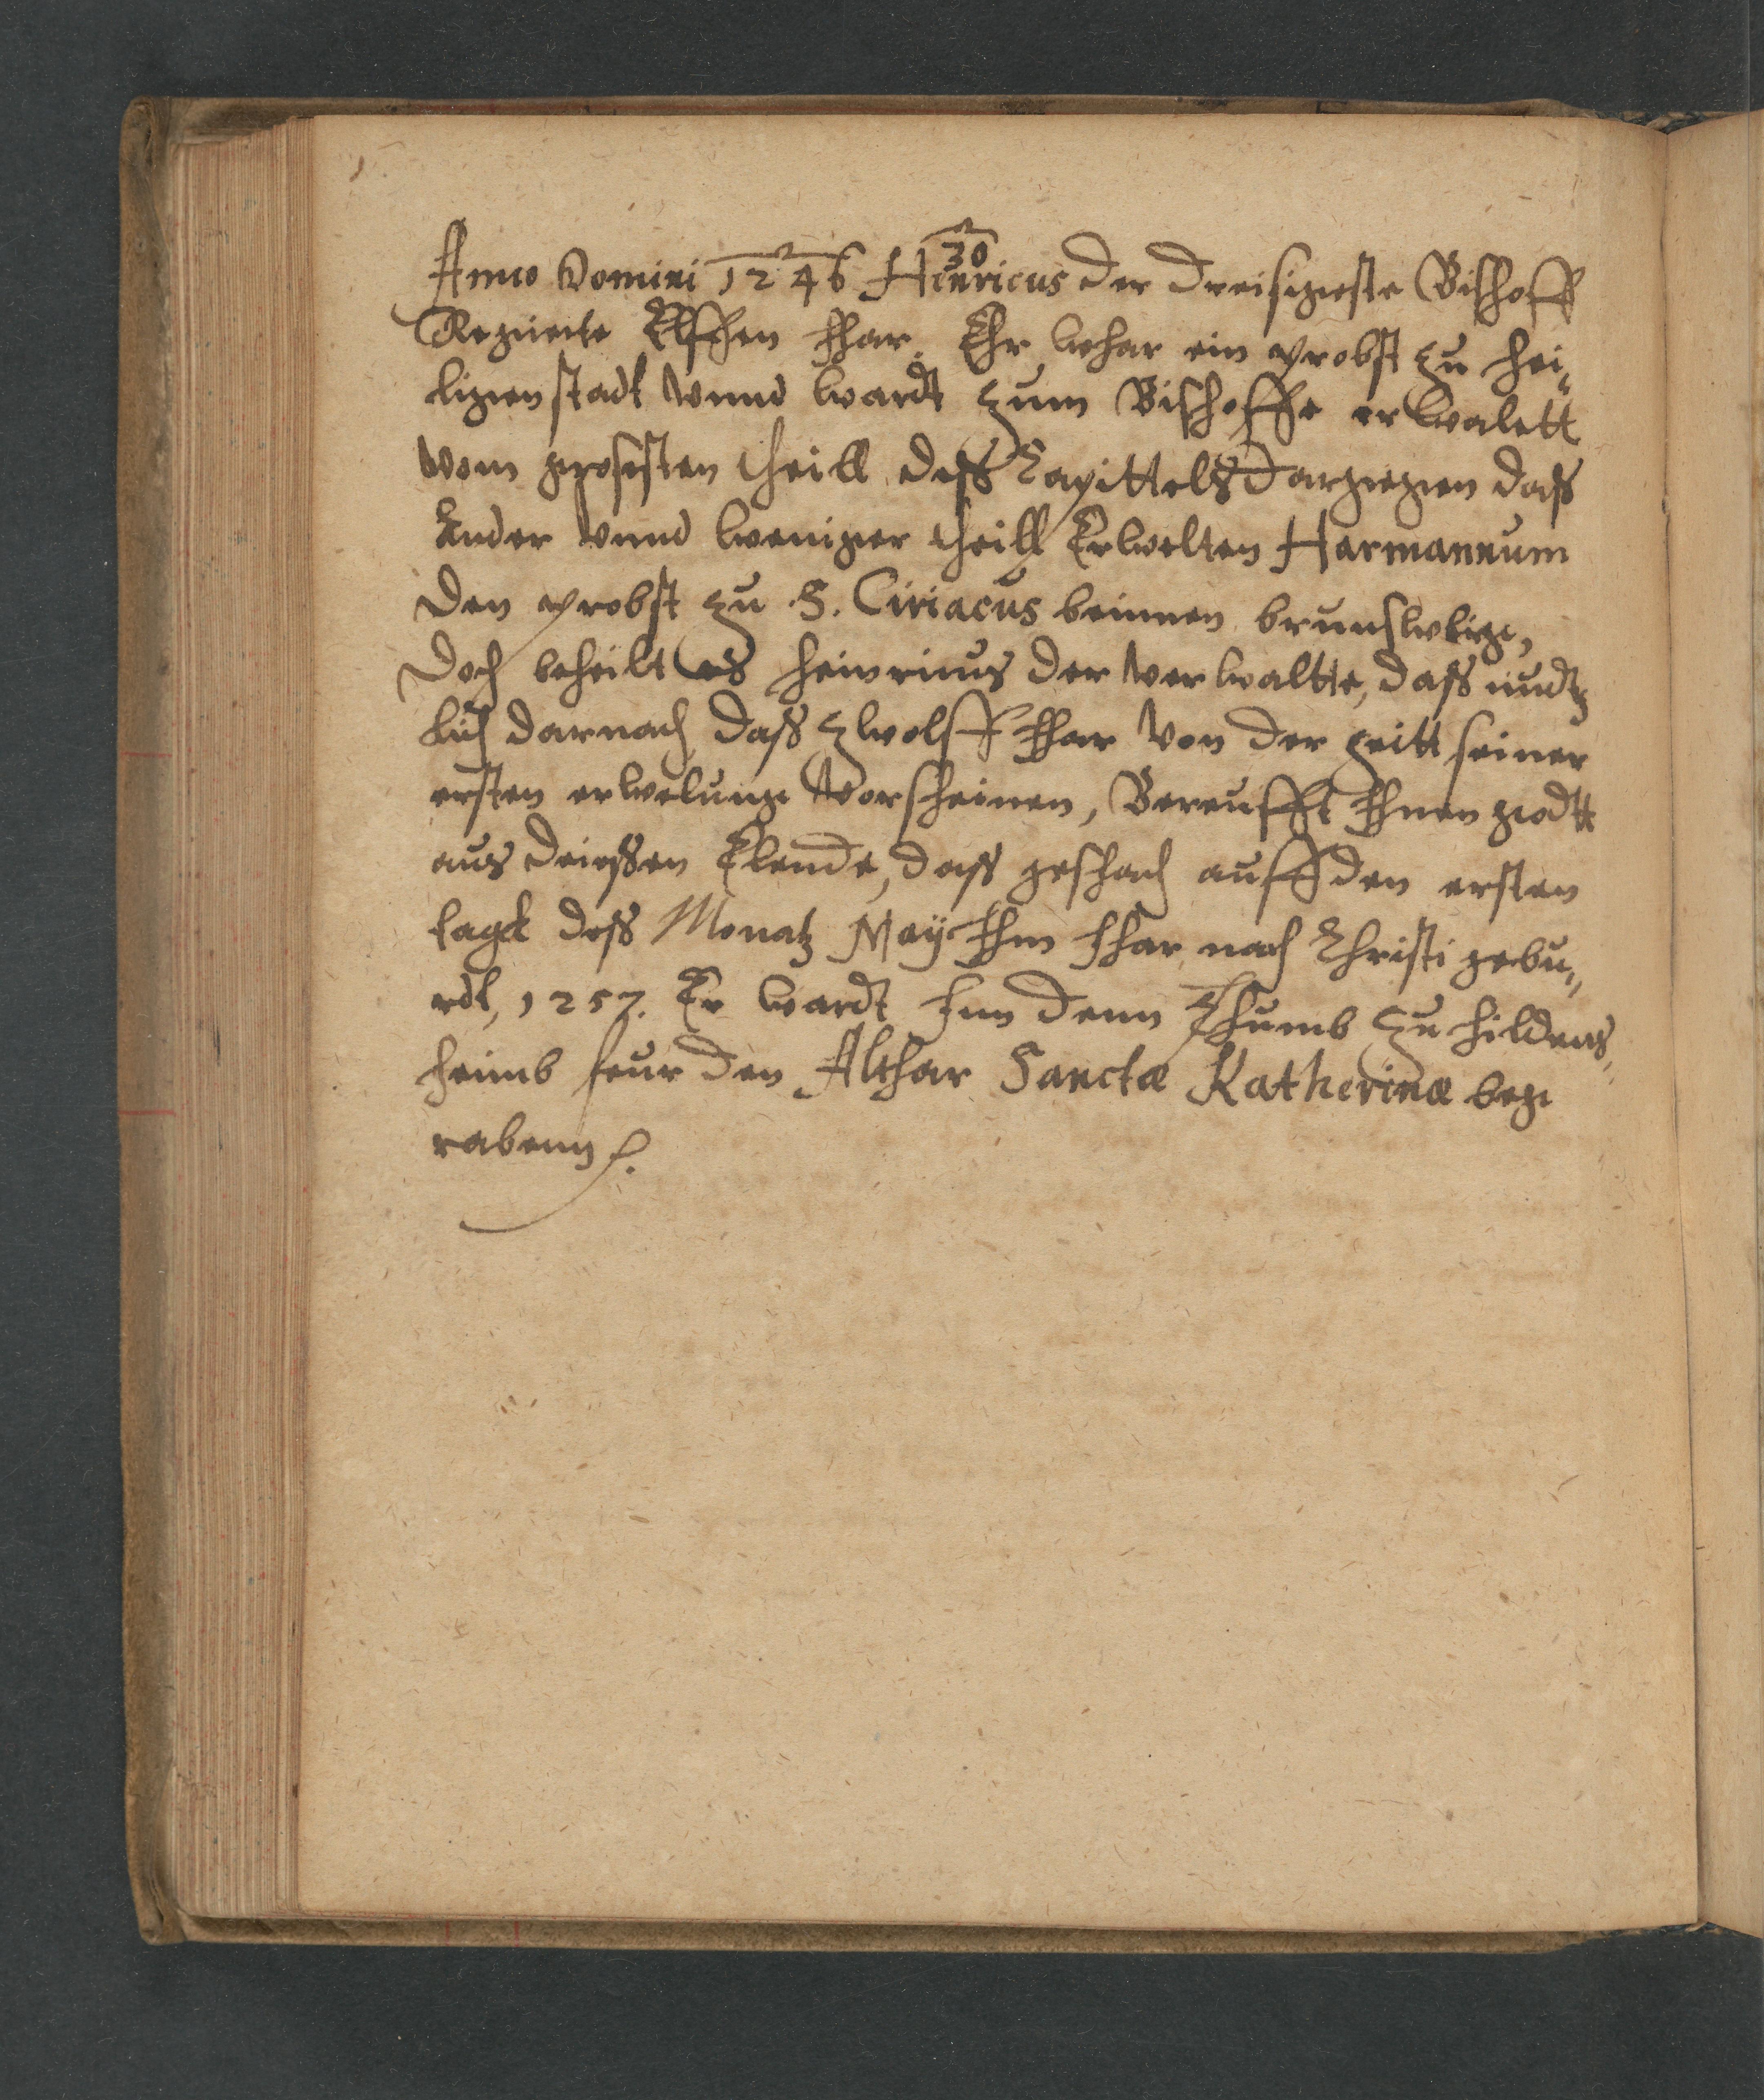 30
Anno Domini 1246 Henricus der dreisigeste Bischoff
Regierte Elffen Jhar. Ehr whar ein probst zu Hei-
ligenstadt vnnd wardt zum Bischoffe erwalett
vom grosisten theill dess Capittels dargegen dass
Ander vnnd weniger theill Erwelten Harmannum
den probst zu S. Ciriacus beinnen brunswig,
doch beheilt es Heinricus der verwaltte, dass
lich darnach dass zwolff Jhar von der zeitt seiner
ersten erwelung vorscheinen, Bereufft Jhnen godtt
aus deiessen Elende, dass geschach auff den ersten
tagk dess Monatz Maÿ Jhm Jhar nach Christi gebu-
rdt, 1257. Er wardt Inn denn Thumb zu Hildens-
heimb feur den Althar Sanctæ Katherinæ beg
rabenn.